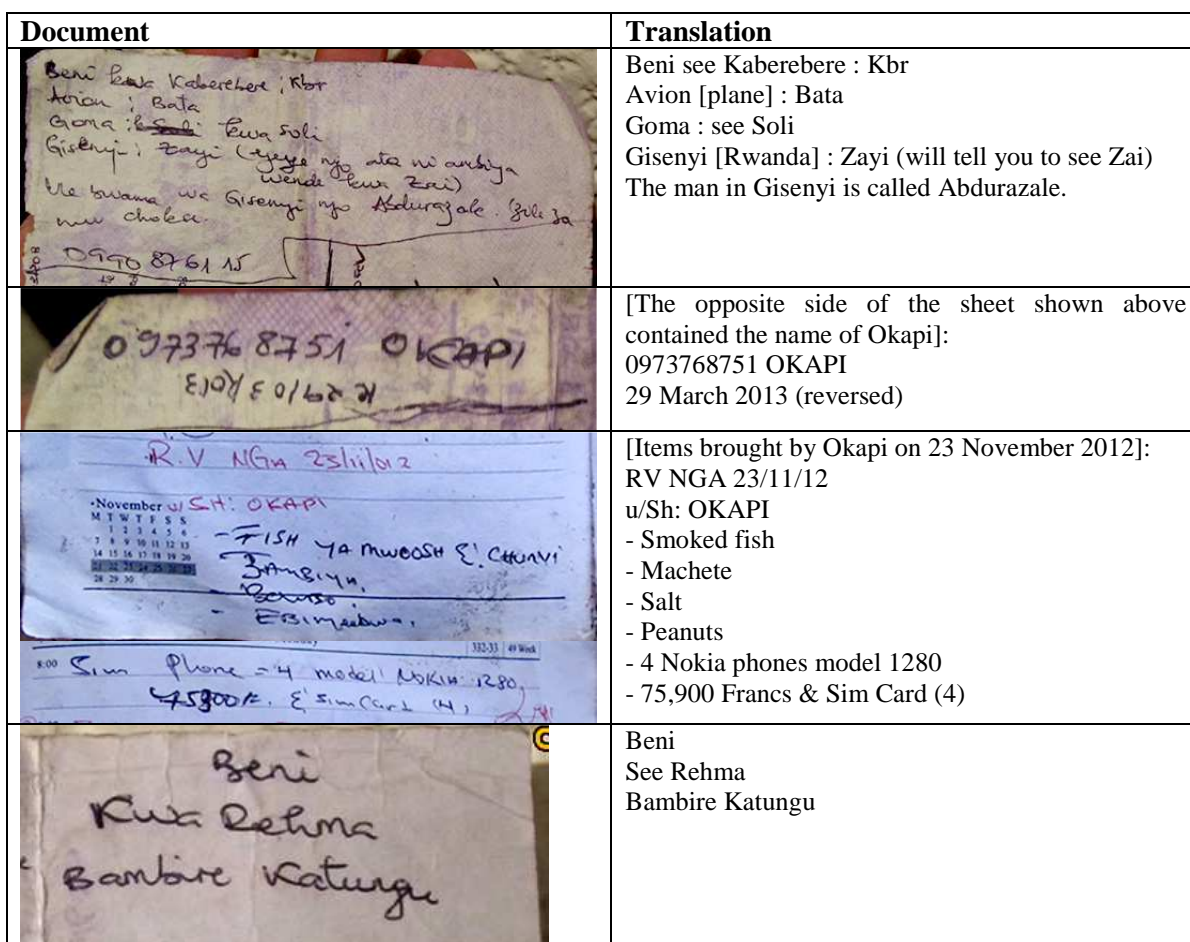 Document
Translation
Beni kwa Kaberebere : Kbr
Avion : Bata
Goma : kwa Soli
Gisenyi : Zayi (yeye njo ata ni ambiya
wende kwa Zai)
wa Gisenyi njo Abdurazale.
0990 876115
Beni see Kaberebere : Kbr
Avion [plane] : Bata
Goma : see Soli
Gisenyi [Rwanda] : Zayi (will tell you to see Zai)
The man in Gisenyi is called Abdurazale.
0973768751 OKAPI
29/03/2013
[The opposite side of the sheet shown above
contained the name of Okapi]:
0973768751 OKAPI
29 March 2013 (reversed)
R.V NGA 23/11/012
November u/SH: OKAPI
M T W T F S S
1 2 3 4 5 6
7 8 9 10 11 12 13
14 15 16 17 18 19 20
21 22 23 24 25 26 27
28 29 30
- FISH YA MWOOSH & CHUNVI
332-33 49 Week
8:00 Sim Phone = 4 model NOKIA 1280,
75900F. & Sim Card (4)
[Items brought by Okapi on 23 November 2012]:
RV NGA 23/11/12
u/Sh: OKAPI
- Smoked fish
- Machete
- Salt
- Peanuts
- 4 Nokia phones model 1280
- 75,900 Francs & Sim Card (4)
Beni
Kwa Rehma
Bambire Katungu
Beni
See Rehma
Bambire Katungu